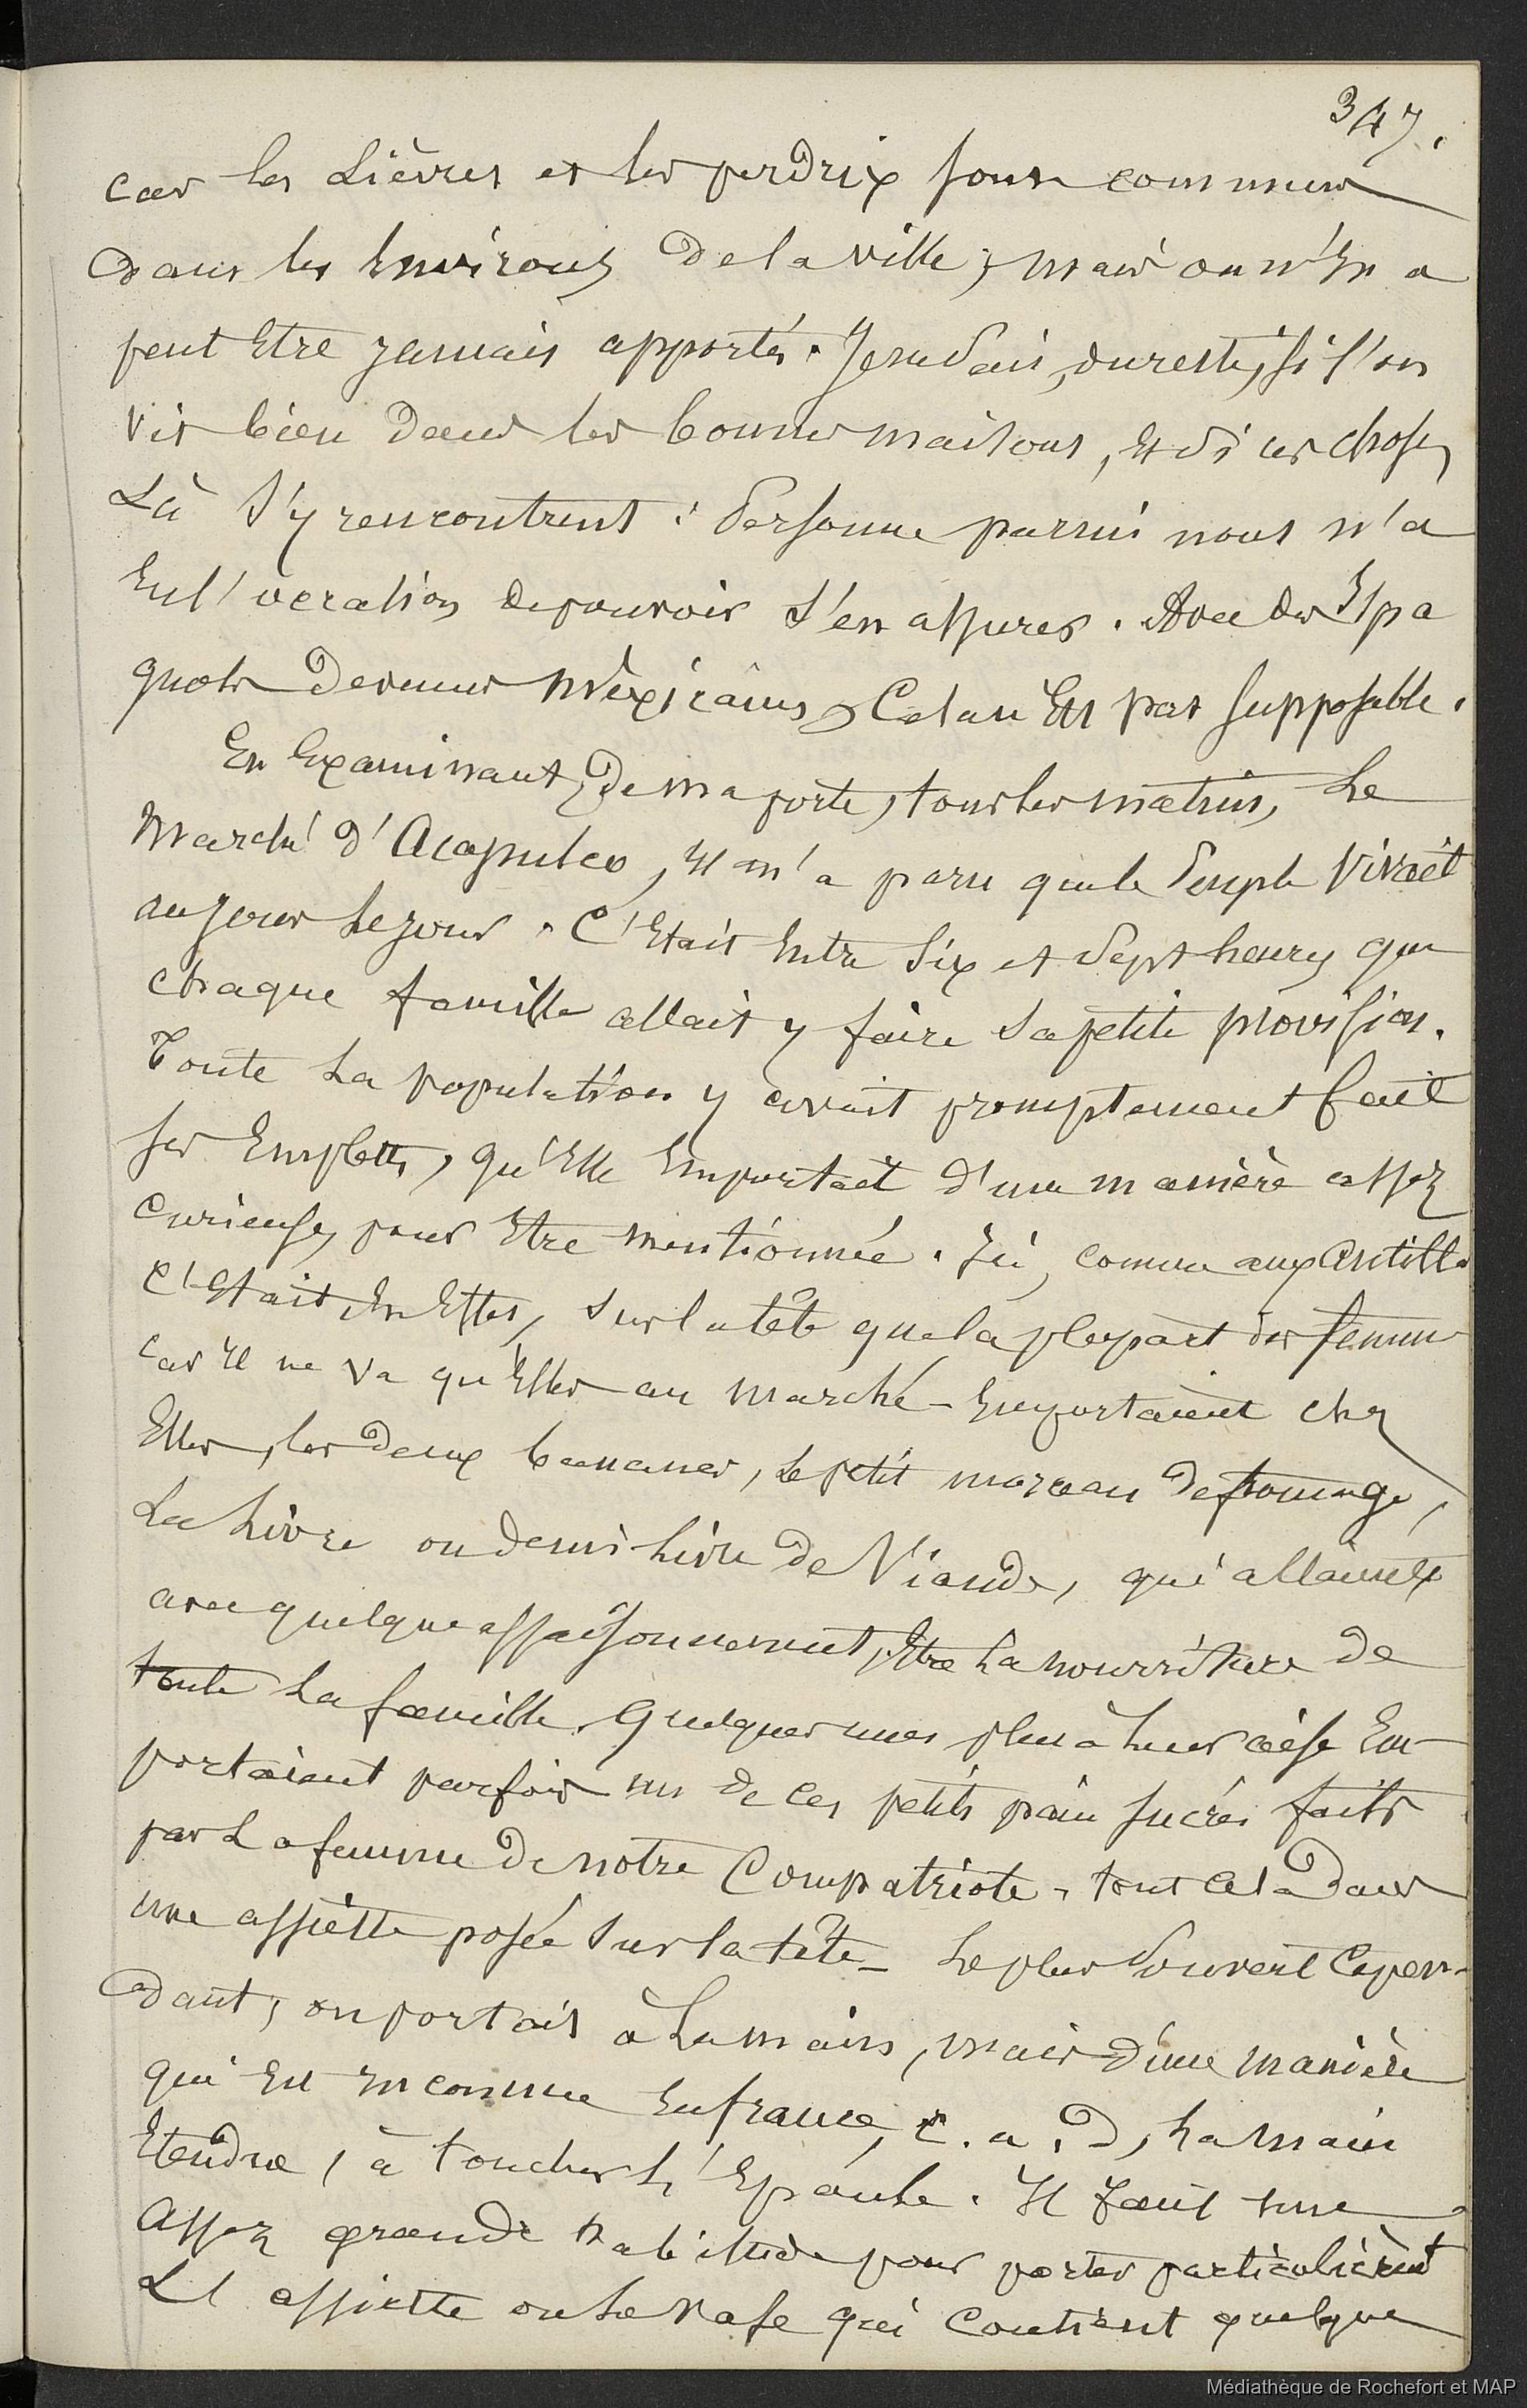 347.
car les Lièvres et les perdrix sont communs
dans les Environs de la ville ; mais on n'En a
peut Etre jamais apportés. Je ne sais, du reste, si l'on
vit bien dans les bonnes maisons, Et si ces choses
Là s'y rencontrent : Personne parmi nous n'a
Eu l'occasion de pouvoir s'en assurer. Avec des Espa
gnols devenus Méxicains, Cela n'Est pas supposable.
En Examinant, de ma porte, tous les matins, Le
Marché d'Acapulco, Il m'a paru que le Peuple Vivait
au jour Le jour. C'Etait Entre Six et Sept heures que
chaque famille allait y faire sa petite provision.
Toute La population y avait promptement fait
ses Emplettes, qu'Elle Emportait d'une manière assez
curieuse, pour Etre mentionnée. Ici, comme aux Antilles
C'Etait En Effet, sur la tête que la plupart des femmes
car Il ne va qu'Elles au marché - Emportaient chez
Elles, les deux bananes, Le petit morceau de fromage,
La Livre ou demi Livre de Viande, qui allaient
avec quelque assaisonnement, Etre La nourriture de
toute La famille. Quelques unes plus à Leur aise Em-
portaient parfois un de ces petits pains sucrés faits
par La femme de notre Compatriote - tout cela dans
une assiette posée sur la tête - Le plus Souvent Cepen-
dant, on portait à La main, mais d'une manière
qui Est Inconnue En france, c. a. D, La main
Etendue, à toucher L'Epaule. Il faut une
Assez grande habitude pour porter particulièremt
L'assiette ou Le vase qui Contient quelque
Médiathèque de Rochefort et MAP